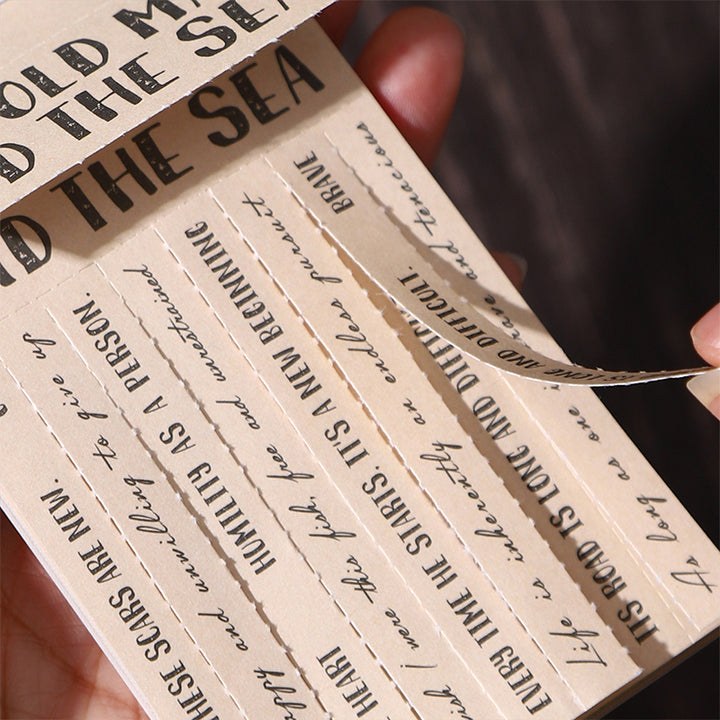 OLD M
D THE SEA
ND THE SEA
THESE SCARS ARE NEW.
appy and unwilling to give up
HEART HUMILITY AS A PERSON.
ish I were this fish, free and unrestrained
EVERY TIME HE STARTS, IT'S A NEW BEGINNING
Life is inherently an endless pursuit
ITS ROAD IS LONG AND DIFFICU BRAVE
AND DIFFICULT.
As long as one rave and tenacious